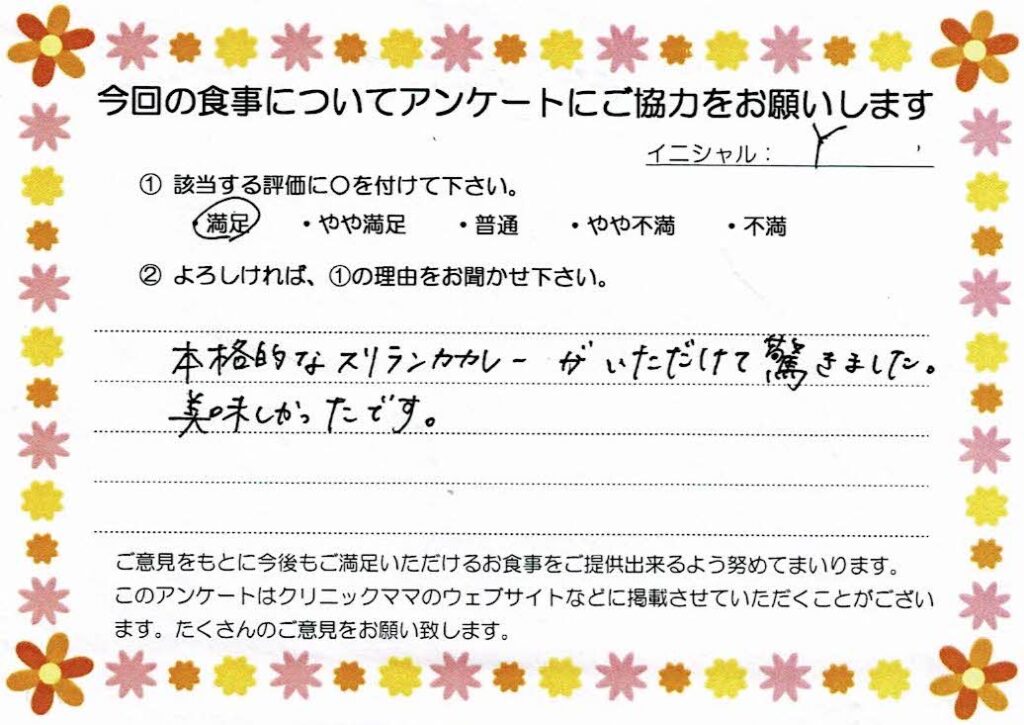 今回の食事についてアンケートにご協力をお願いします
イニシャル： Y
① 該当する評価に〇を付けて下さい。
・満足 ・やや満足 ・普通 ・やや不満 ・不満
② よろしければ、①の理由をお聞かせ下さい。
本格的なスリランカカレーがいただけて驚きました。
美味しかったです。
ご意見をもとに今後もご満足いただけるお食事をご提供出来るよう努めてまいります。
このアンケートはクリニックママのウェブサイトなどに掲載させていただくことがござい
ます。たくさんのご意見をお願い致します。